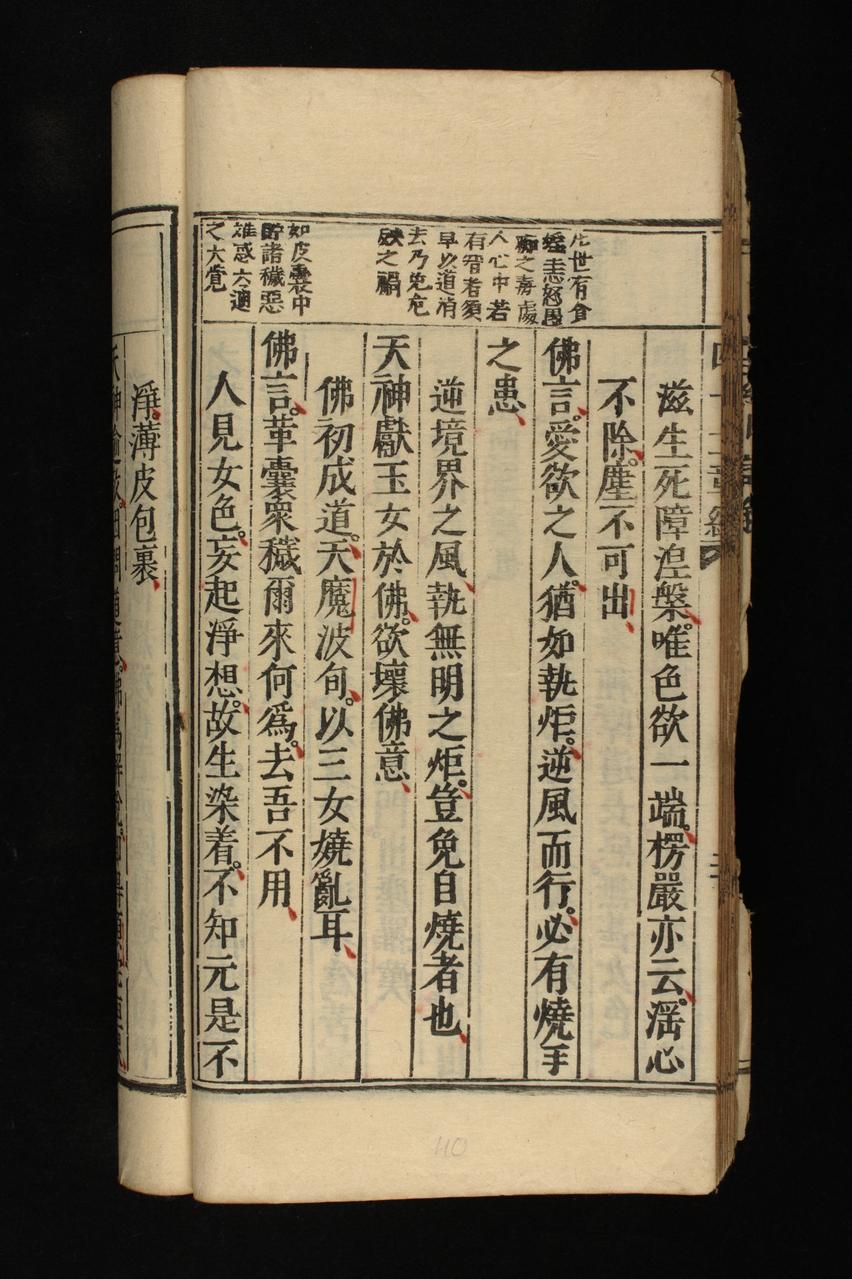 滋生死障湼槃。唯色欲一端。楞嚴亦云。滛心
不除。塵不可出
佛言。愛欲之人。猶如執炬。逆風而行。必有燒手
之患
逆境界之風。執無明之炬。豈免自燒者也
天神獻玉女於佛。欲壞佛意
佛初成道。天魔波旬。以三女嬈亂耳
佛言。革囊衆穢爾來何爲。去吾不用
人見女色。妄起淨想。故生染着。不知元是不
淨。薄皮包裹
世有貪
婬恚怒愚
痴之毒處
人心中若
有智者須
早以道消
去乃免危
殃之禍
如皮囊中
貯諸穢惡
雖惑大通
之大覺
110